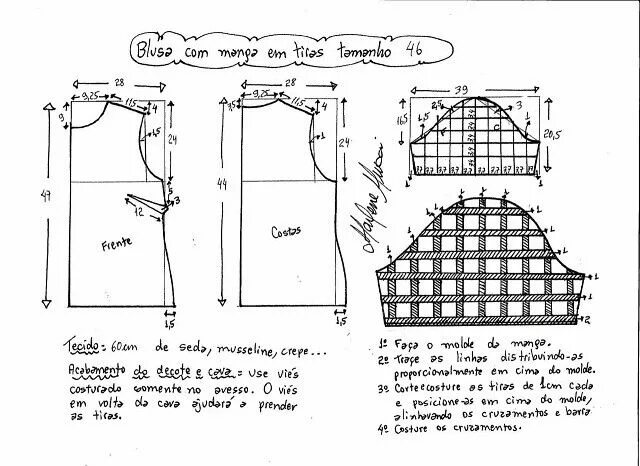 Blusa com manga em tiras tamanho 46
28
9,25
11,5
4
9
1,5
24
47
5
3
12
Frente
1,5
28
9,25
11,5
3,5
4
1
24
44
Costas
1,5
Marlene Mukai
39
2,5
3
16,5
1,5
1
F
C
20,5
3,9 3,9 3,9 3,9
3,7 3,7 3,7 3,7 3,7 3,7 3,7
1
1
1
1
1
1
1
1
1
1
1
1
1
1
2
Tecido = 60cm de seda, musseline, crepe...
Acabamento do decote e cava = Use viés
costurado somente no avesso. O viés
em volta da cava ajudará a prender
as tiras.
1º Faça o molde da manga.
2º Trace as linhas distribuindo-as
proporcionalmente em cima do molde.
3º Corte e costure as tiras de 1cm cada
e posicione-as em cima do molde,
alinhavando os cruzamentos e barra
4º Costure os cruzamentos.